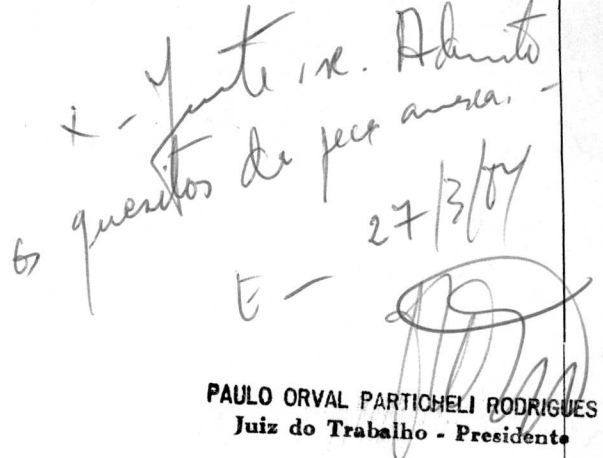 x - Junte-se. Admito
os quesitos da peça anexa. -
27/3/
E -
PAULO ORVAL PARTICHELI RODRIGUES
Juiz do Trabalho - Presidente